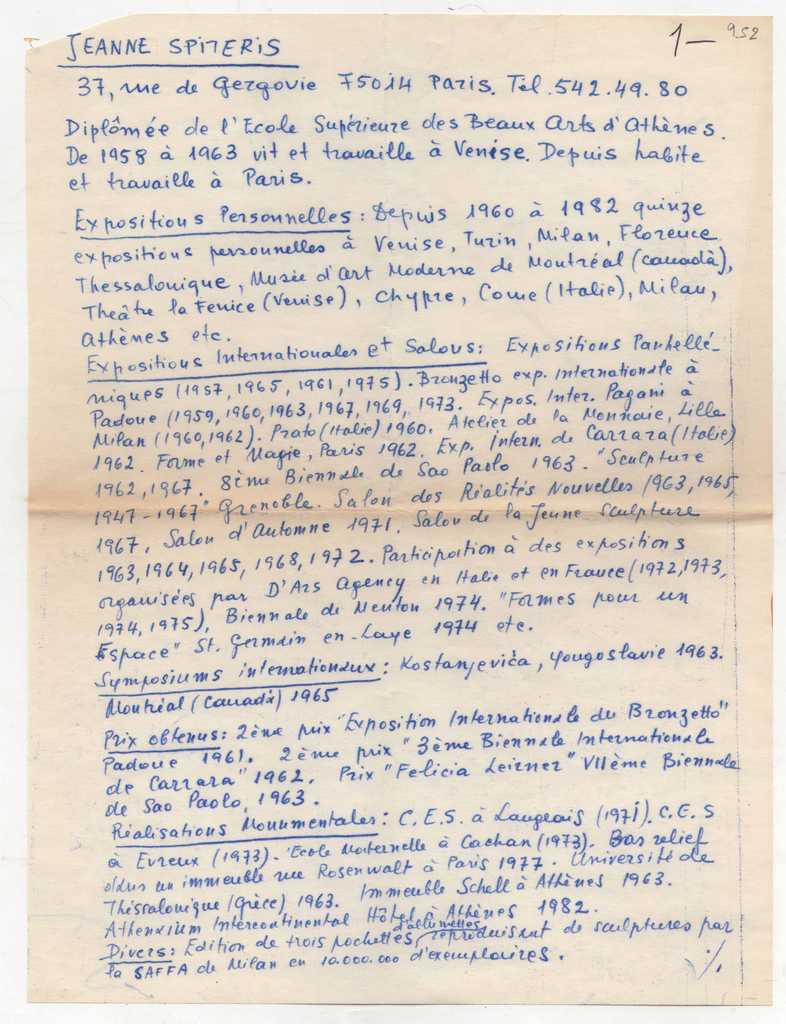 JEANNE SPITERIS
1— 952
37, rue de Gergovie 75014 Paris. Tel. 542.49.80
Diplômée de l'Ecole Supérieure des Beaux Arts d'Athènes.
De 1958 à 1963 vit et travaille à Venise. Depuis habite
et travaille à Paris.
Expositions Personnelles: Depuis 1960 à 1982 quinze
expositions personnelles à Venise, Turin, Milan, Florence
Thessalonique, Musée d'art Moderne de Montréal (Canadà),
Theâtre la Fenice (Venise), Chypre, Come (Italie), Milan,
Athènes etc.
Expositions Internationales et Salons: Expositions Panhellé-
niques (1957, 1965, 1961, 1975). Bronzetto exp. internationale à
Padoue (1959, 1960, 1963, 1967, 1969, 1973. Expos. Inter. Pagani à
Milan (1960, 1962). Prato (Italie) 1960. Atelier de la Monnaie, Lille
1962. Forme et Magie, Paris 1962. Exp. intern. de Carrara (Italie)
1962, 1967. 8ème Biennale de Sao Paolo 1963. "Sculpture
1947-1967" Grenoble. Salon des Réalités Nouvelles 1963, 1965,
1967. Salon d'Automne 1971. Salon de la Jeune Sculpture
1963, 1964, 1965, 1968, 1972. Participation à des expositions
organisées par D'Ars Agency en Italie et en France (1972, 1973,
1974, 1975), Biennale de Menton 1974. "Formes pour un
Espace" St. Germain en-Laye 1974 etc.
Symposiums internationaux: Kostanjevića, Yougoslavie 1963.
Montréal (Canadà) 1965
Prix obtenus: 2ème prix "Exposition Internationale du Bronzetto"
Padoue 1961. 2ème prix "3ème Biennale Internationale
de Carrara" 1962. Prix "Felicia Leirner" VIIème Biennale
de Sao Paolo, 1963.
Réalisations Monumentales: C.E.S. à Langeais (1971). C.E.S
à Evreux (1973). Ecole Maternelle à Cachan (1973). Bas relief
dans un immeuble rue Rosenwalt à Paris 1977. Université de
Thessalonique (Grèce) 1963. Immeuble Schell à Athènes 1963.
Athenaium Intercontinental Hôtel à Athènes 1982.
Divers: Edition de trois pochettes d'allumettes, reproduisant de sculptures par
la SAFFA de Milan en 10.000.000 d'exemplaires. ./.